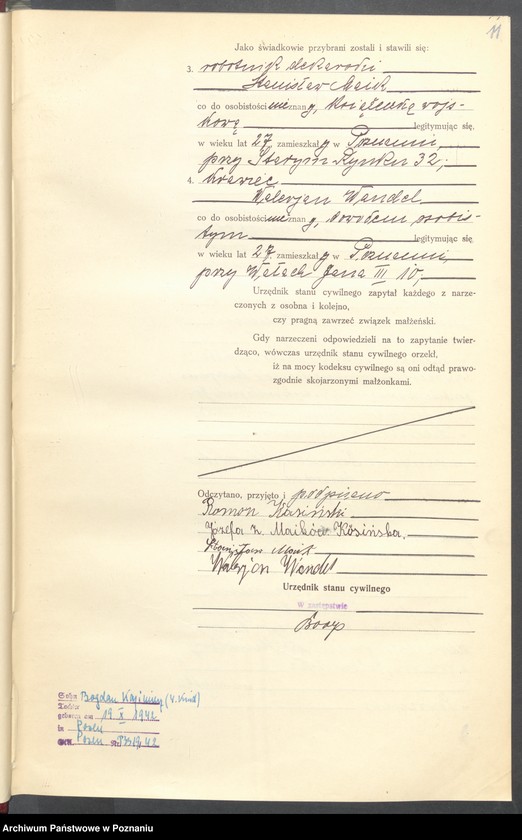 11
Jako świadkowie przybrani zostali i stawili się:
3. robotnik dekarski
Stanisław Maik
co do osobistości nieznany, książeczką wojs-
kową legitymując się,
w wieku lat 27, zamieszkały w Poznaniu,
przy Starym Rynku 32;
4. krawiec
Walerjan Wandel
co do osobistości nieznany, dowodem osobis-
tym legitymując się,
w wieku lat 27, zamieszkały w Poznaniu,
przy Wałach Jana III 10,
Urzędnik stanu cywilnego zapytał każdego z narze-
czonych z osobna i kolejno,
czy pragną zawrzeć związek małżeński.
Gdy narzeczeni odpowiedzieli na to zapytanie twier-
dząco, wówczas urzędnik stanu cywilnego orzekł,
iż na mocy kodeksu cywilnego są oni odtąd prawo-
zgodnie skojarzonymi małżonkami.
Odczytano, przyjęto i podpisano
Roman Kosiński
Józefa z Maików Kosińska,
Stanisław Maik
Walerjan Wandel
Urzędnik stanu cywilnego
W zastępstwie
Sohn Bogdan Kazimierz
Tochter
geboren am 19 X 1942
in Posen
Posen Nr.
Archiwum Państwowe w Poznaniu